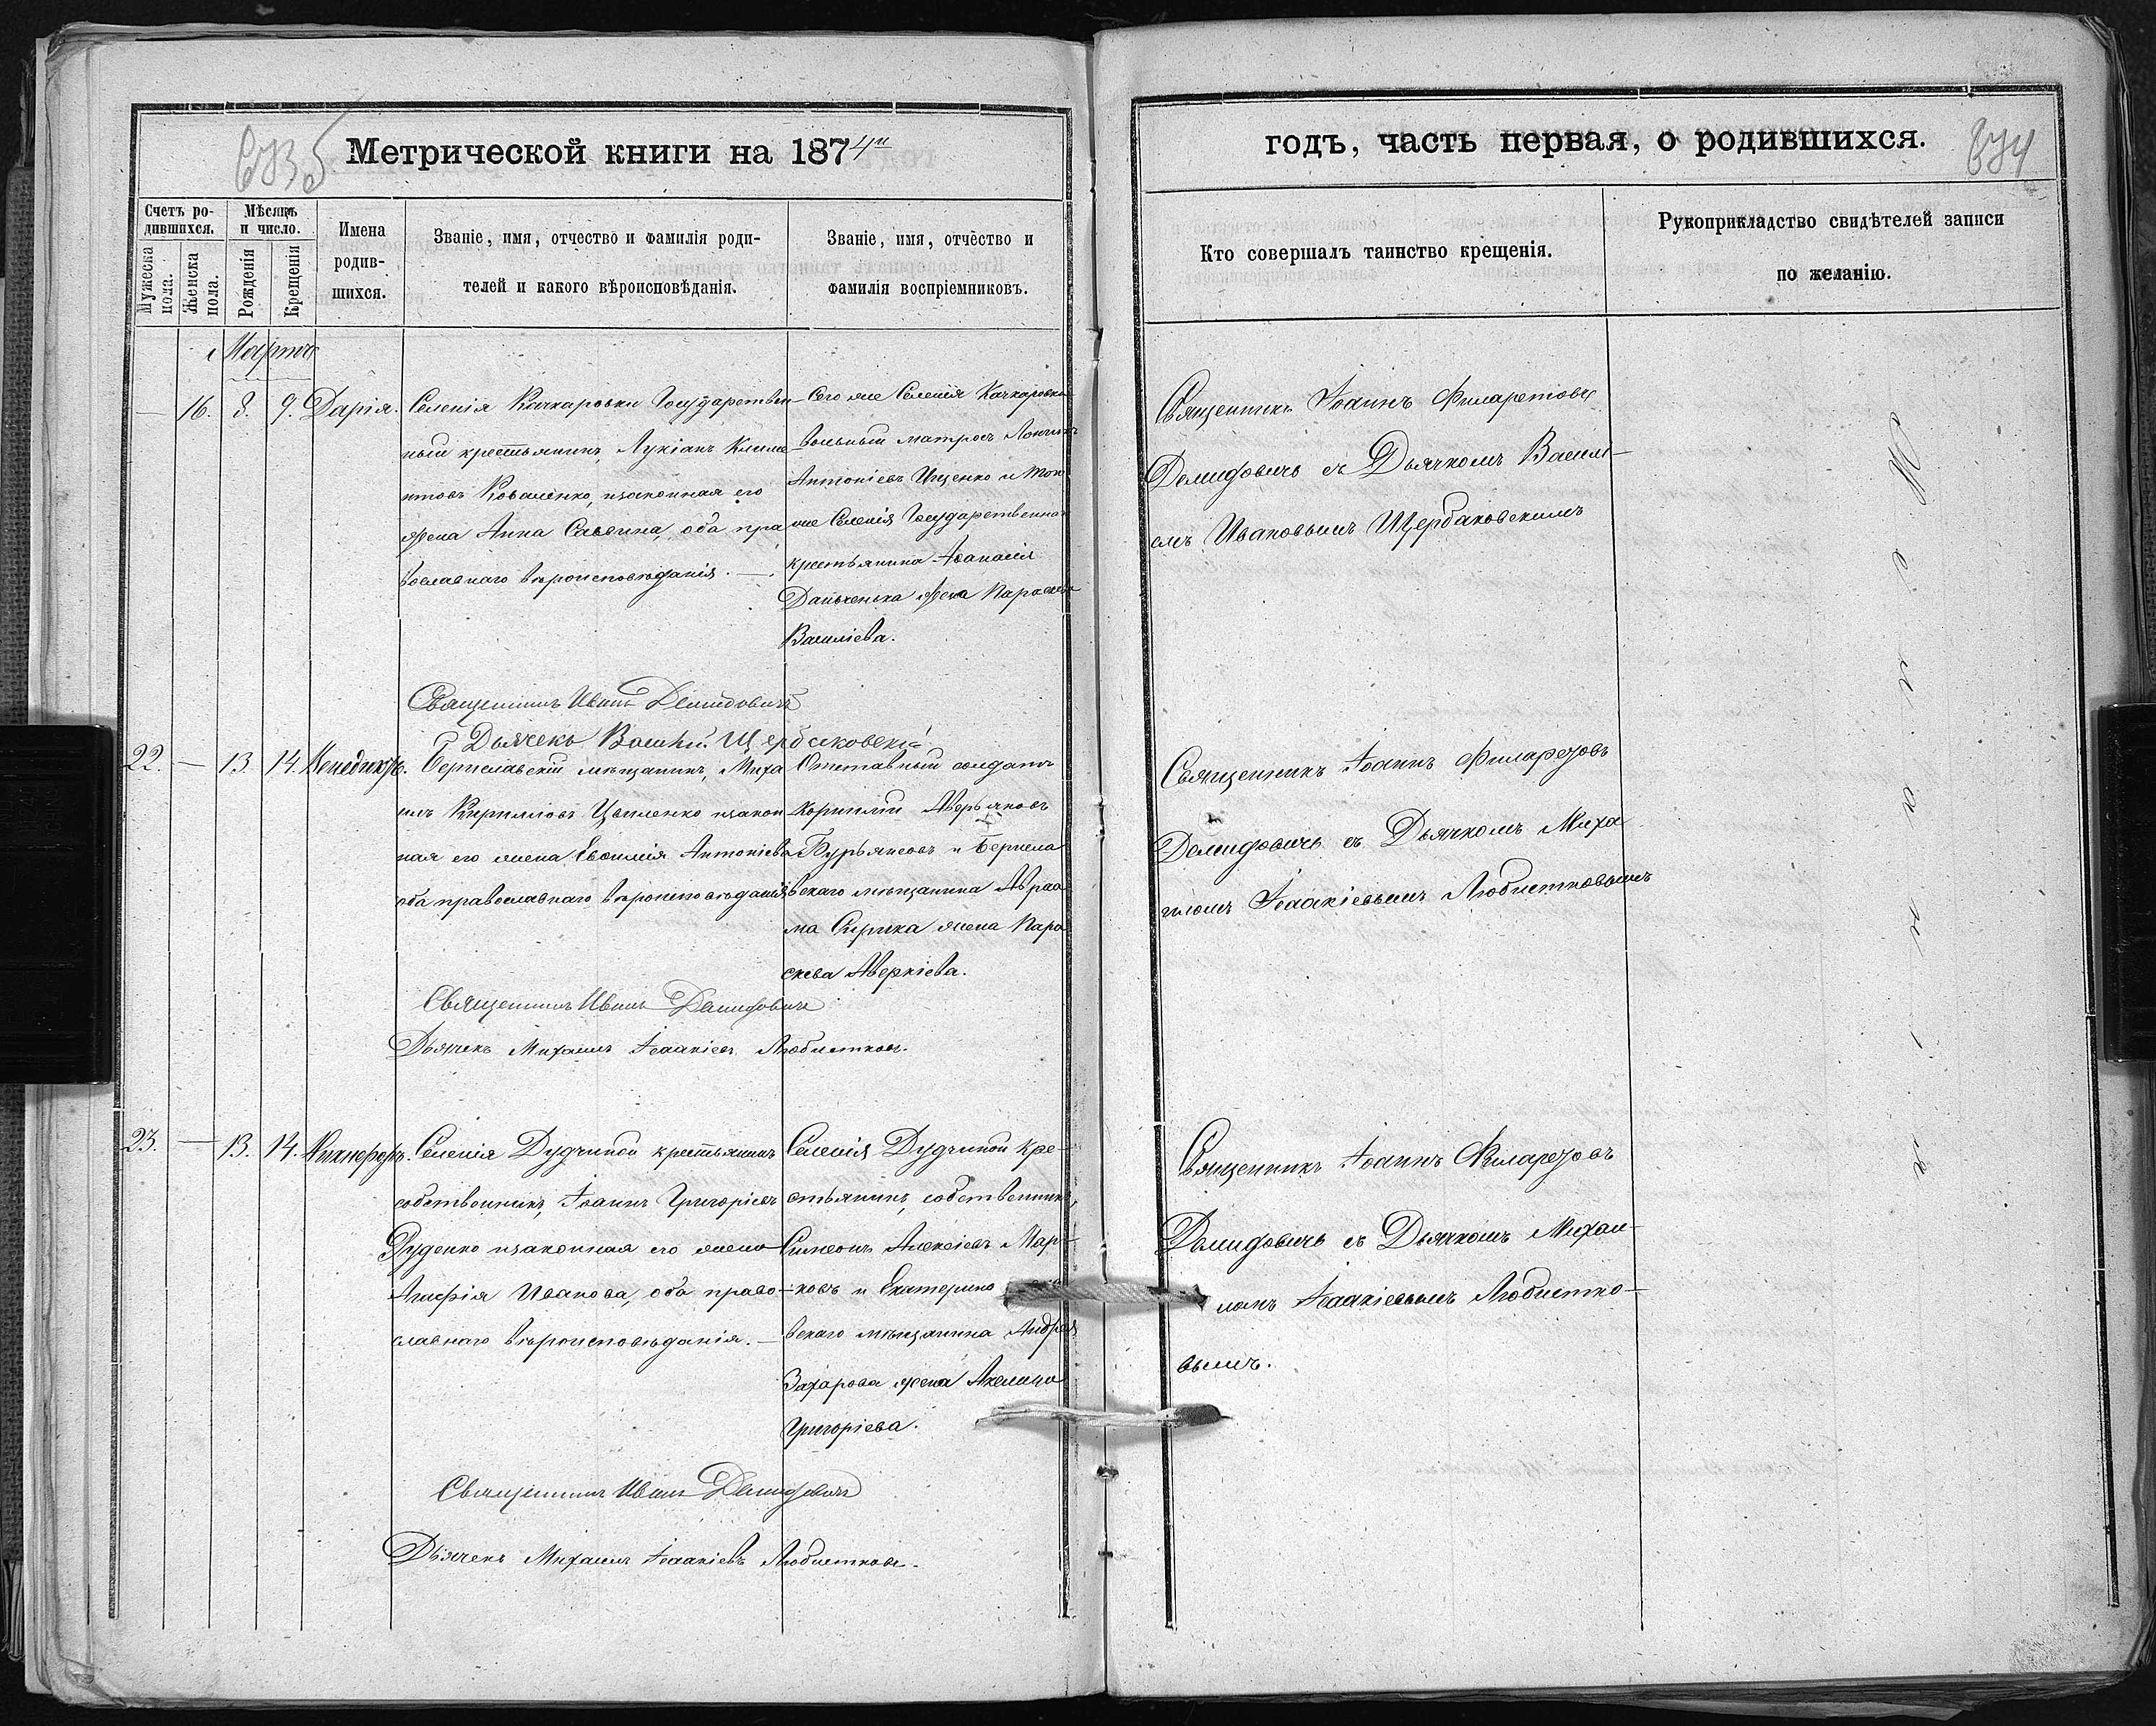 Метрической книги на 1874й
годъ, часть первая, о родившихся.
674
Счетъ ро-
дившихся.
Мужеска
пола.
Женска
пола.
Мѣсяцъ
и число.
Рожденія
Крещенія
Имена
родив-
шихся.
Званіе, имя, отчество и фамилія роди-
телей и какого вѣроисповѣданія.
Званіе, имя, отчество и
фамилія воспріемниковъ.
Кто совершалъ таинство крещенія.
Рукоприкладство свидѣтелей записи
по желанію.
Мартъ
— 16. 8. 9. Дарія.
Селенія Качкаровки Государствен-
ный крестьянинъ, Лукіанъ Климе-
нтовъ Коваленко, изаконная его
жена Анна Саввина, оба пра
вославнаго вѣроисповѣданія. —
Сего же Селенія Качкаровки
вольный матросъ Логинъ
Антоніевъ Ищенко и тог
же Селенія Государственна
крестьянина Аѳанасія
жена Параскева
Василіева.
Священникъ Іоаннъ Филаретовъ
Демидовичъ съ Дьячкомъ Васили-
емъ Ивановымъ Щербаковскимъ
Священникъ Иванъ Демидовичъ
Дьячекъ Василій Щербаковскій
22. — 13. 14. Венедиктъ.
Бериславскій мѣщанинъ, Миха
илъ Кирилловъ Цвиленко изакон
ная его жена Евѳимія Антоніева
оба православнаго вѣроисповѣданія
Отставный солдатъ
Корнилій Аверьяновъ
Бурьяновъ и Берисла
вскаго мѣщанина Авраа
ма Сирика жена Пара
скева Аверкіева.
Священникъ Іоаннъ Филаретовъ
Демидовичъ съ Дьячкомъ Миха
иломъ Ісаакіевымъ Любистковымъ
Священникъ Иванъ Демидовичъ
Дьячекъ Михаилъ Ісаакіевъ Любистковъ.
23. — 13. 14. Никифоръ.
Селенія Дудчиной крестьянинъ
собственникъ, Іоаннъ Григоріевъ
Руденко изаконная его жена
Агафія Иванова, оба право-
славнаго вѣроисповѣданія. —
Селенія Дудчиной кре-
стьянинъ, собственникъ,
Симеонъ Алексіевъ Мар-
ковъ и Екатерино
вскаго мѣщанина Андрея
Захарова жена Акелина
Григоріева.
Священникъ Іоаннъ Филаретовъ
Демидовичъ съ Дьячкомъ Михаи-
ломъ Ісаакіевымъ Любистко-
вымъ.
Священникъ Иванъ Демидовичъ
Дьячекъ Михаилъ Ісаакіевъ Любистковъ.